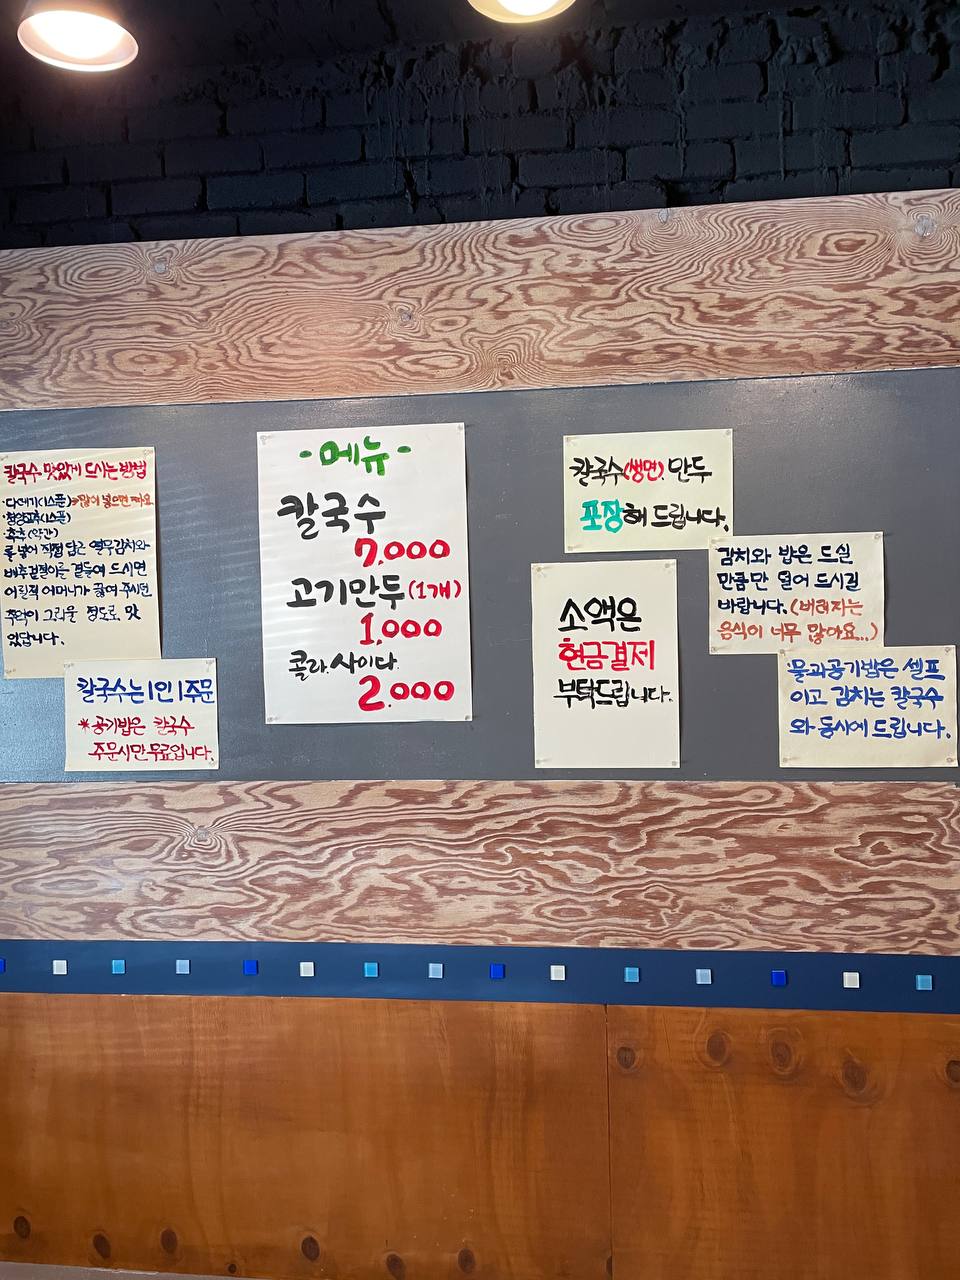 칼국수 맛있게 드시는 방법
·다대기(1스푼)→많이 넣으면 짜요
·청양고추(1스푼)
·후추(약간)
를 넣어 직접 담근 열무김치와
배추겉절이를 곁들여 드시면
어릴적 어머니가 끓여 주시던
추억이 그리울 정도로 맛
있답니다.
칼국수는 1인 1주문
*공기밥은 칼국수
주문시만 무료입니다.
-메뉴-
칼국수
7.000
고기만두(1개)
1.000
콜라.사이다.
2.000
칼국수(생면).만두
포장해 드립니다.
소액은
현금결제
부탁드립니다.
김치와 밥은 드실
만큼만 덜어 드시길
바랍니다.(버려지는
음식이 너무 많아요...)
물과공기밥은 셀프
이고 김치는 칼국수
와 동시에 드립니다.